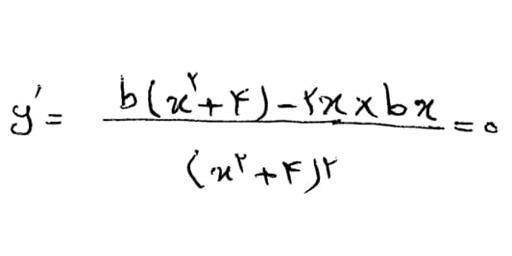 y' = (b(x^۲+۴)-۲x×bx)/((x^۲+۴)^۲) = ۰